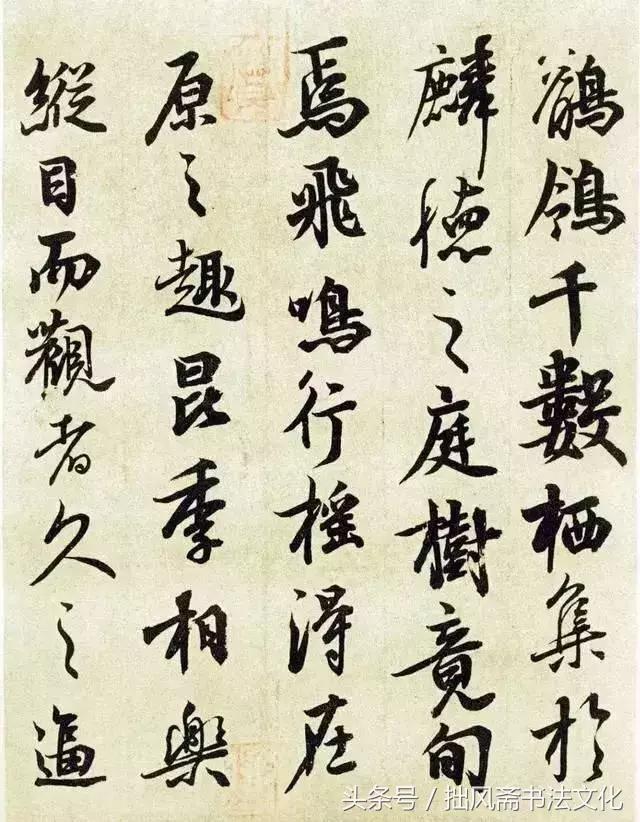 鶺鴒千數栖集於
麟徳之庭樹竟旬
焉飛鳴行摇淂在
原之趣昆季相樂
縱目而觀者久之逼
头条号／拙风斋书法文化